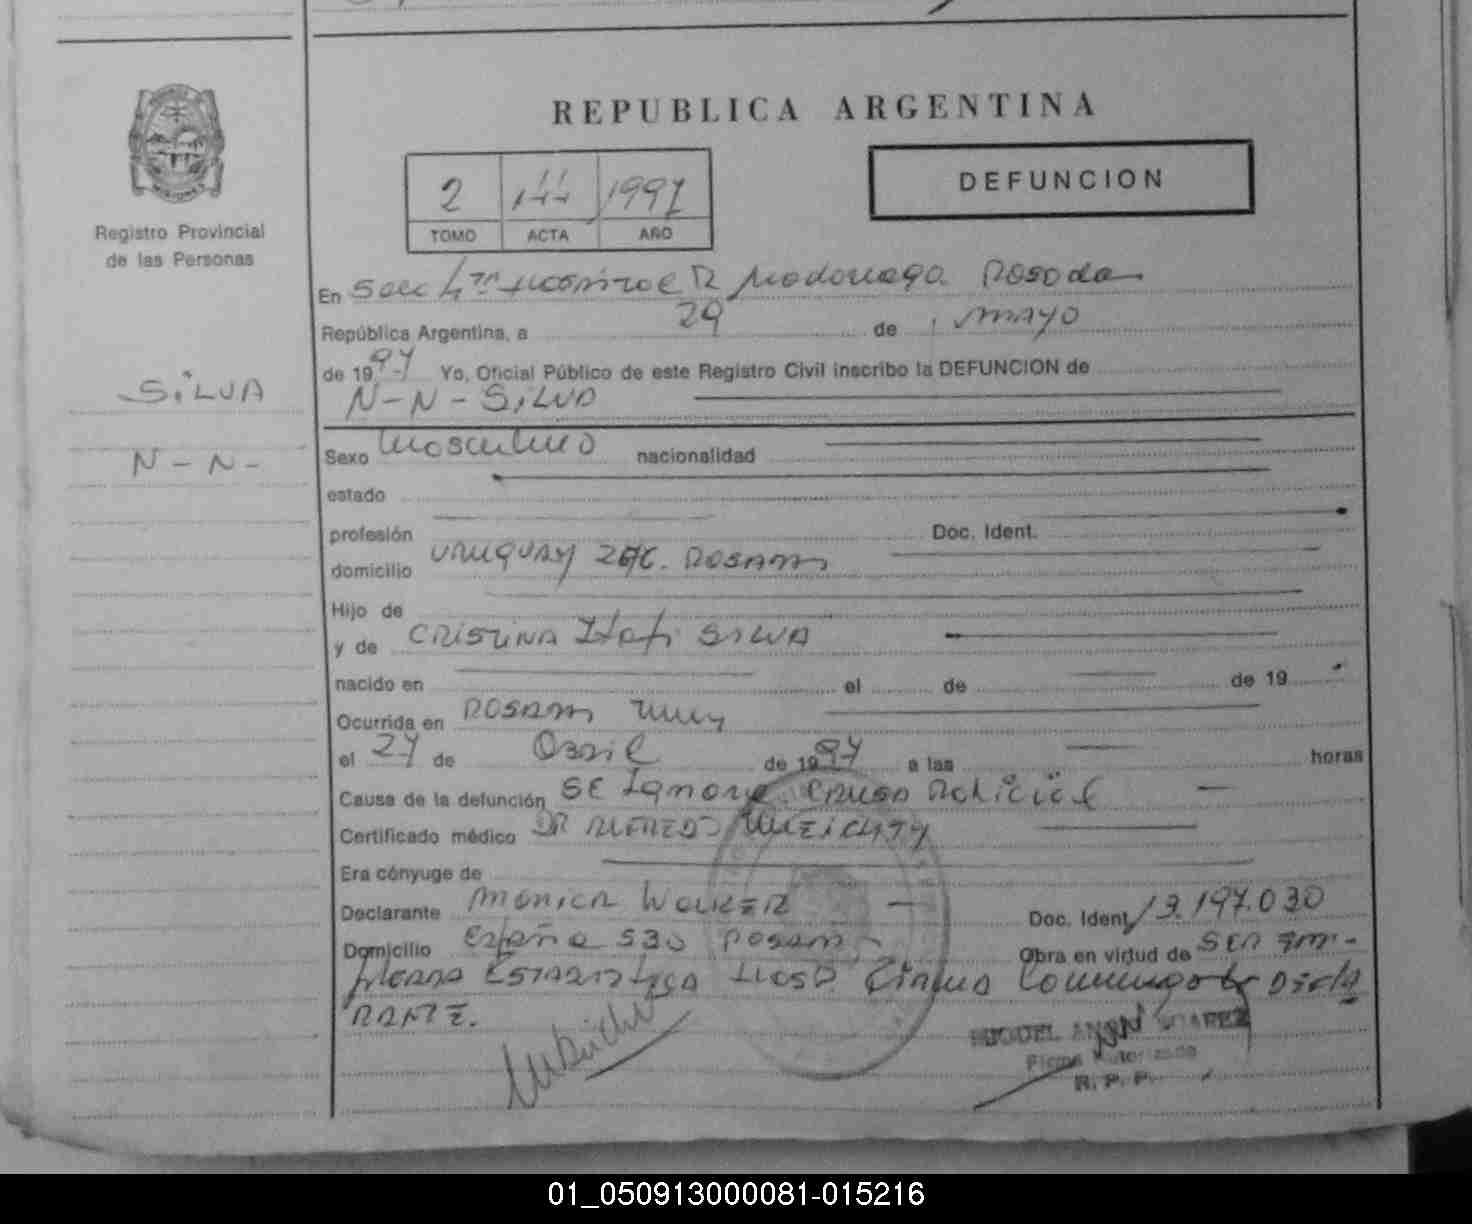 REPUBLICA ARGENTINA
2 144 1997
DEFUNCION
TOMO ACTA AÑO
Registro Provincial
de las Personas
En Secc 4ta R Madariaga Posadas
República Argentina, a 29 de mayo
de 1997 Yo, Oficial Público de este Registro Civil inscribo la DEFUNCION de
N-N-SILVA
SILVA
N-N-
Sexo Masculino nacionalidad
estado
profesión Doc. Ident.
domicilio URUGUAY Posadas
Hijo de
y de CRISTINA Itatí SILVA
nacido en el de de 19
Ocurrida en Posadas
el 27 de Abril de 1997 a las horas
Causa de la defunción SE Ignora CAUSA
Certificado médico DR ALFREDO
Era cónyuge de
Declarante MONICA WALKER Doc. Ident. 13.197.030
Domicilio España 530 Posadas Obra en virtud de SER
Estadistica HOSP DECLA
RANTE.
MIGUEL SUAREZ
Firma Autorizada
R. P. P.
01_050913000081-015216